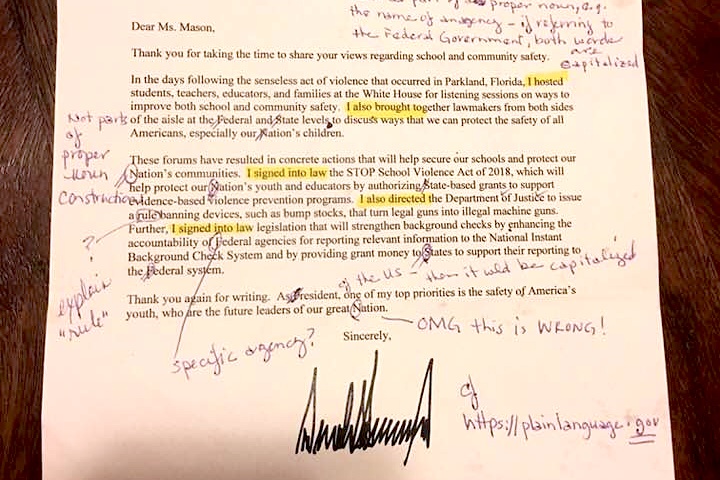 as part of proper noun, e.g.
the name of an agency - if referring to
the Federal Government, both words
are
capitalized
Dear Ms. Mason,
Thank you for taking the time to share your views regarding school and community safety.
In the days following the senseless act of violence that occurred in Parkland, Florida, I hosted
students, teachers, educators, and families at the White House for listening sessions on ways to
improve both school and community safety. I also brought together lawmakers from both sides
of the aisle at the Federal and State levels to discuss ways that we can protect the safety of all
Americans, especially our Nation's children.
Not parts
of
proper
noun
construction
These forums have resulted in concrete actions that will help secure our schools and protect our
Nation's communities. I signed into law the STOP School Violence Act of 2018, which will
help protect our Nation's youth and educators by authorizing State-based grants to support
evidence-based violence prevention programs. I also directed the Department of Justice to issue
a rule banning devices, such as bump stocks, that turn legal guns into illegal machine guns.
Further, I signed into law legislation that will strengthen background checks by enhancing the
accountability of Federal agencies for reporting relevant information to the National Instant
Background Check System and by providing grant money to States to support their reporting to
the Federal system.
?
explain
"rule"
of the US - then it wld be capitalized
Thank you again for writing. As President, one of my top priorities is the safety of America's
youth, who are the future leaders of our great Nation.
OMG this is WRONG!
specific agency?
Sincerely,
cf
https://plainlanguage.gov